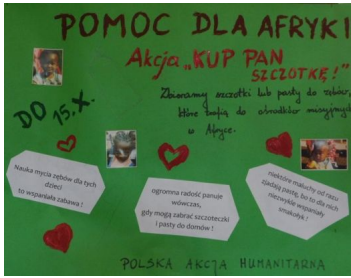 POMOC DLA AFRYKI
Akcja „KUP PAN
SZCZOTKĘ!"
Zbieramy szczotki lub pasty do zębów,
które trafią do ośrodków misyjnych
w Afryce.
DO 15.X.
Nauka mycia zębów dla tych
dzieci
to wspaniała zabawa !
ogromna radość panuje
wówczas,
gdy mogą zabrać szczoteczki
i pasty do domów !
niektóre maluchy od razu
zjadają pastę, bo to dla nich
niezwykle wspaniały
smakołyk !
POLSKA AKCJA HUMANITARNA